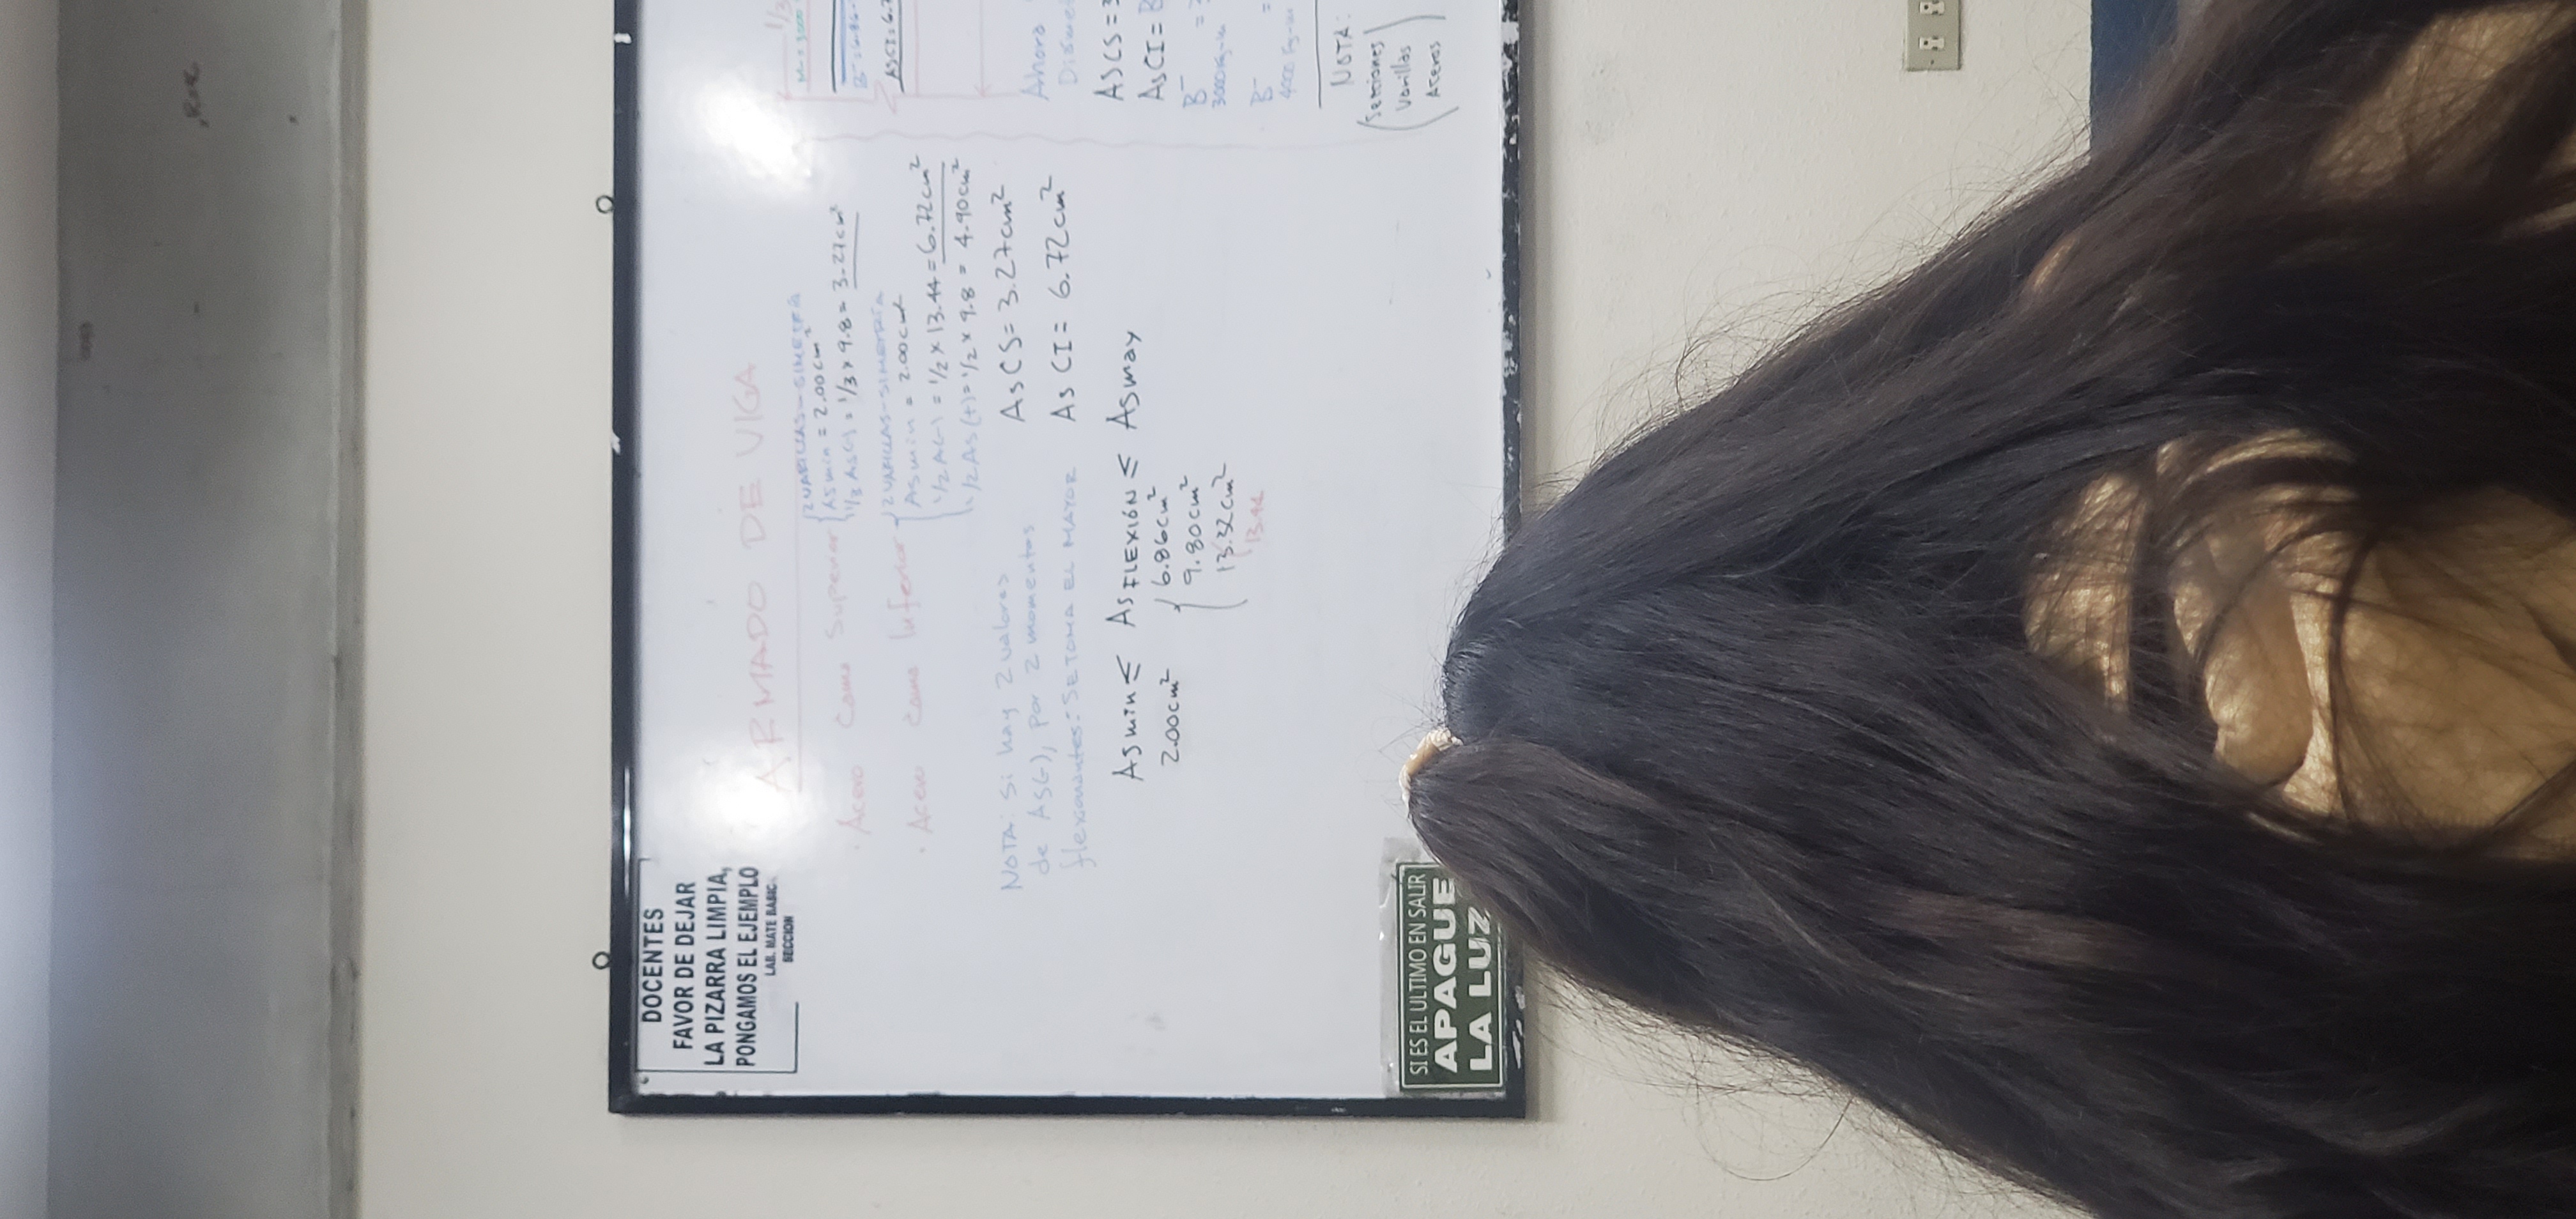 DOCENTES
FAVOR DE DEJAR
LA PIZARRA LIMPIA,
PONGAMOS EL EJEMPLO
LAB. MATE BASIC
SECCION
ARMADO DE VIGA
• Acero Cama Superior
2 VARILLAS - SIMETRÍA
Asmin = 2.00cm²
1/3 As(-) = 1/3 x 9.8 = 3.27cm²
• Acero Cama Inferior
2 VARILLAS - SIMETRÍA
Asmin = 2.00cm²
1/2 A(-) = 1/2 x 13.44 = 6.72cm²
1/2 As(+) = 1/2 x 9.8 = 4.90cm²
NOTA: Si hay 2 valores
de As(-), por 2 momentos
flexionantes: SE TOMA EL MAYOR
AsCS = 3.27cm²
AsCI = 6.72cm²
Asmin ≤ As FLEXIÓN ≤ Asmax
2.00cm²
6.86cm²
9.80cm²
13.32cm²
13.44
1/3
M- = 3000
AsCI = 6.7
Ahora
AsCS = 3
AsCI =
B- =
3000 Kg-m
B- =
4000 Kg-m
NOTA:
Secciones
Varillas
Aceros
SI ES EL ULTIMO EN SALIR
APAGUE
LA LUZ